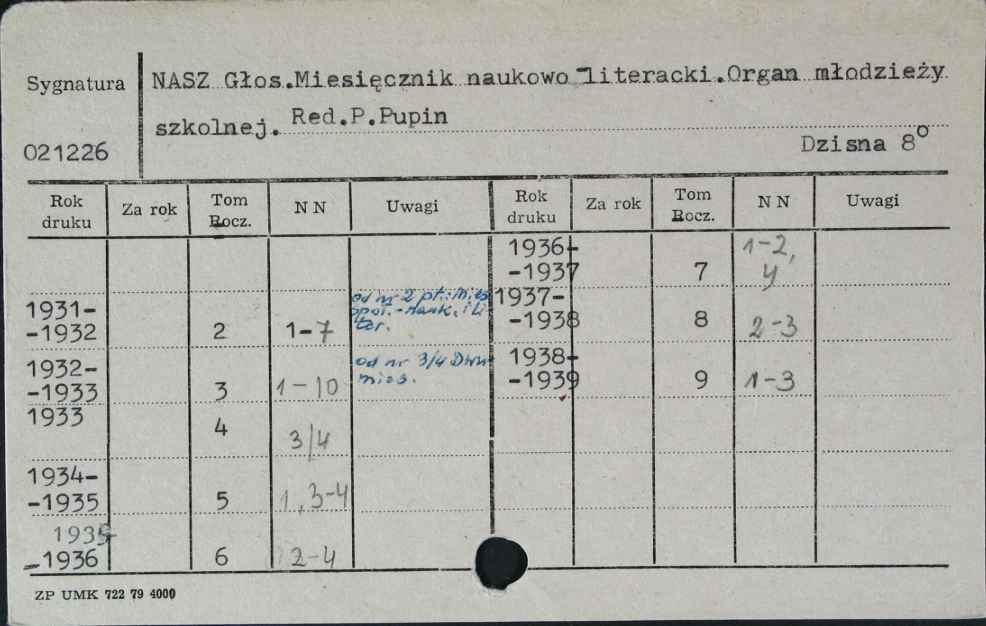 Sygnatura
021226
NASZ Głos.Miesięcznik naukowo-literacki.Organ młodzieży
szkolnej. Red.P.Pupin
Dzisna 8°
Rok druku Za rok Tom Rocz. NN Uwagi Rok druku Za rok Tom Rocz. NN Uwagi
1936-
-1937 7 1-2, 4
1931-
-1932 2 1-7 od nr 2 pt.: Mies
społ.-nauk. i li
ter.
1937-
-1938 8 2-3
1932-
-1933 3 1-10 od nr 3/4 Dwu
mies.
1938-
-1939 9 1-3
1933 4 3/4
1934-
-1935 5 1, 3-4
1935-
-1936 6 2-4
ZP UMK 722 79 4000